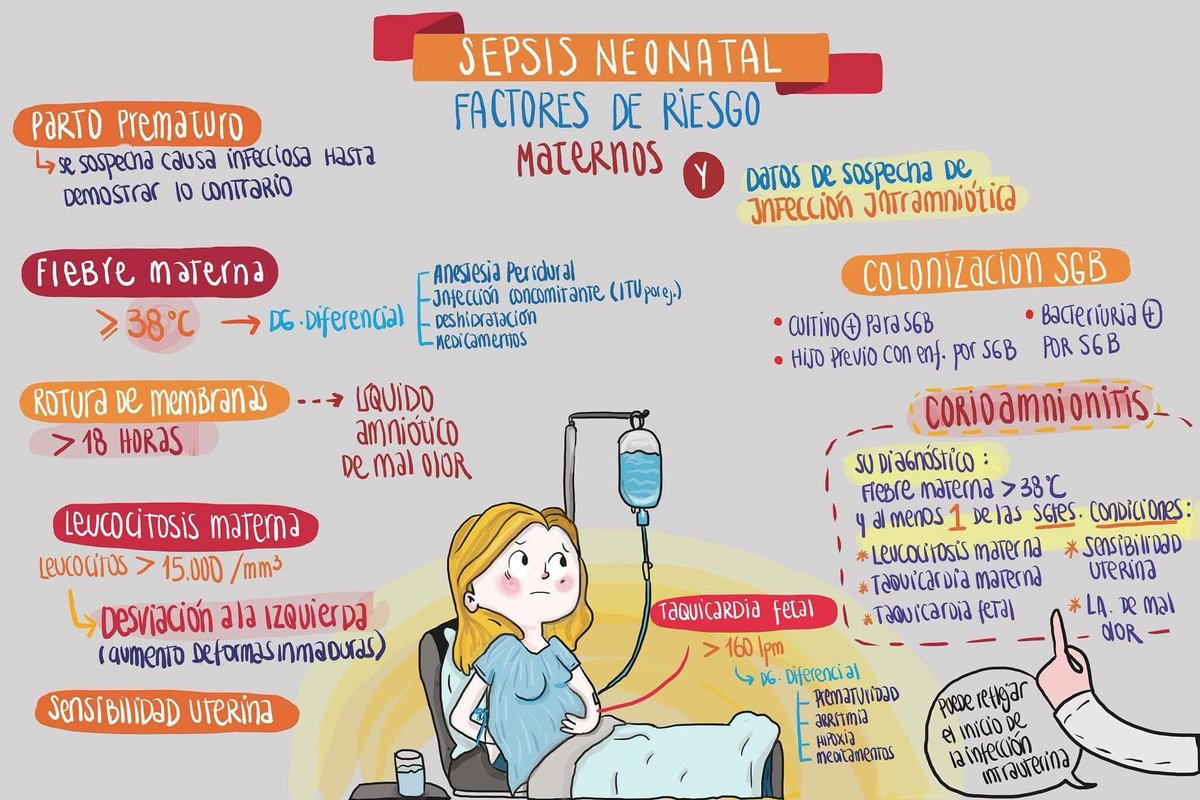 SEPSIS NEONATAL
FACTORES DE RIESGO
MATERNOS
Y
DATOS DE SOSPECHA DE
INFECCIÓN INTRAMNIÓTICA
PARTO PREMATURO
SE SOSPECHA CAUSA INFECCIOSA HASTA
DEMOSTRAR LO CONTRARIO
FIEBRE MATERNA
≥ 38°C → DG. DIFERENCIAL
ANESTESIA PERIDURAL
INFECCIÓN CONCOMITANTE (ITU POR EJ.)
DESHIDRATACIÓN
MEDICAMENTOS
ROTURA DE MEMBRANAS
> 18 HORAS
LÍQUIDO
AMNIÓTICO
DE MAL OLOR
LEUCOCITOSIS MATERNA
LEUCOCITOS > 15.000 /mm³
DESVIACIÓN A LA IZQUIERDA
(AUMENTO DE FORMAS INMADURAS)
SENSIBILIDAD UTERINA
COLONIZACION SGB
• CULTIVO + PARA SGB
• HIJO PREVIO CON ENF. POR SGB
• BACTERIURIA +
POR SGB
CORIOAMNIONITIS
SU DIAGNÓSTICO:
FIEBRE MATERNA > 38°C
Y AL MENOS 1 DE LAS SGTES. CONDICIONES:
* LEUCOCITOSIS MATERNA
* TAQUICARDIA MATERNA
* TAQUICARDIA FETAL
* SENSIBILIDAD
UTERINA
* LA. DE MAL
OLOR
TAQUICARDIA FETAL
> 160 lpm
DG. DIFERENCIAL
PREMATURIDAD
ARRITMIA
HIPOXIA
MEDICAMENTOS
PUEDE REFLEJAR
EL INICIO DE
LA INFECCIÓN
INTRAUTERINA